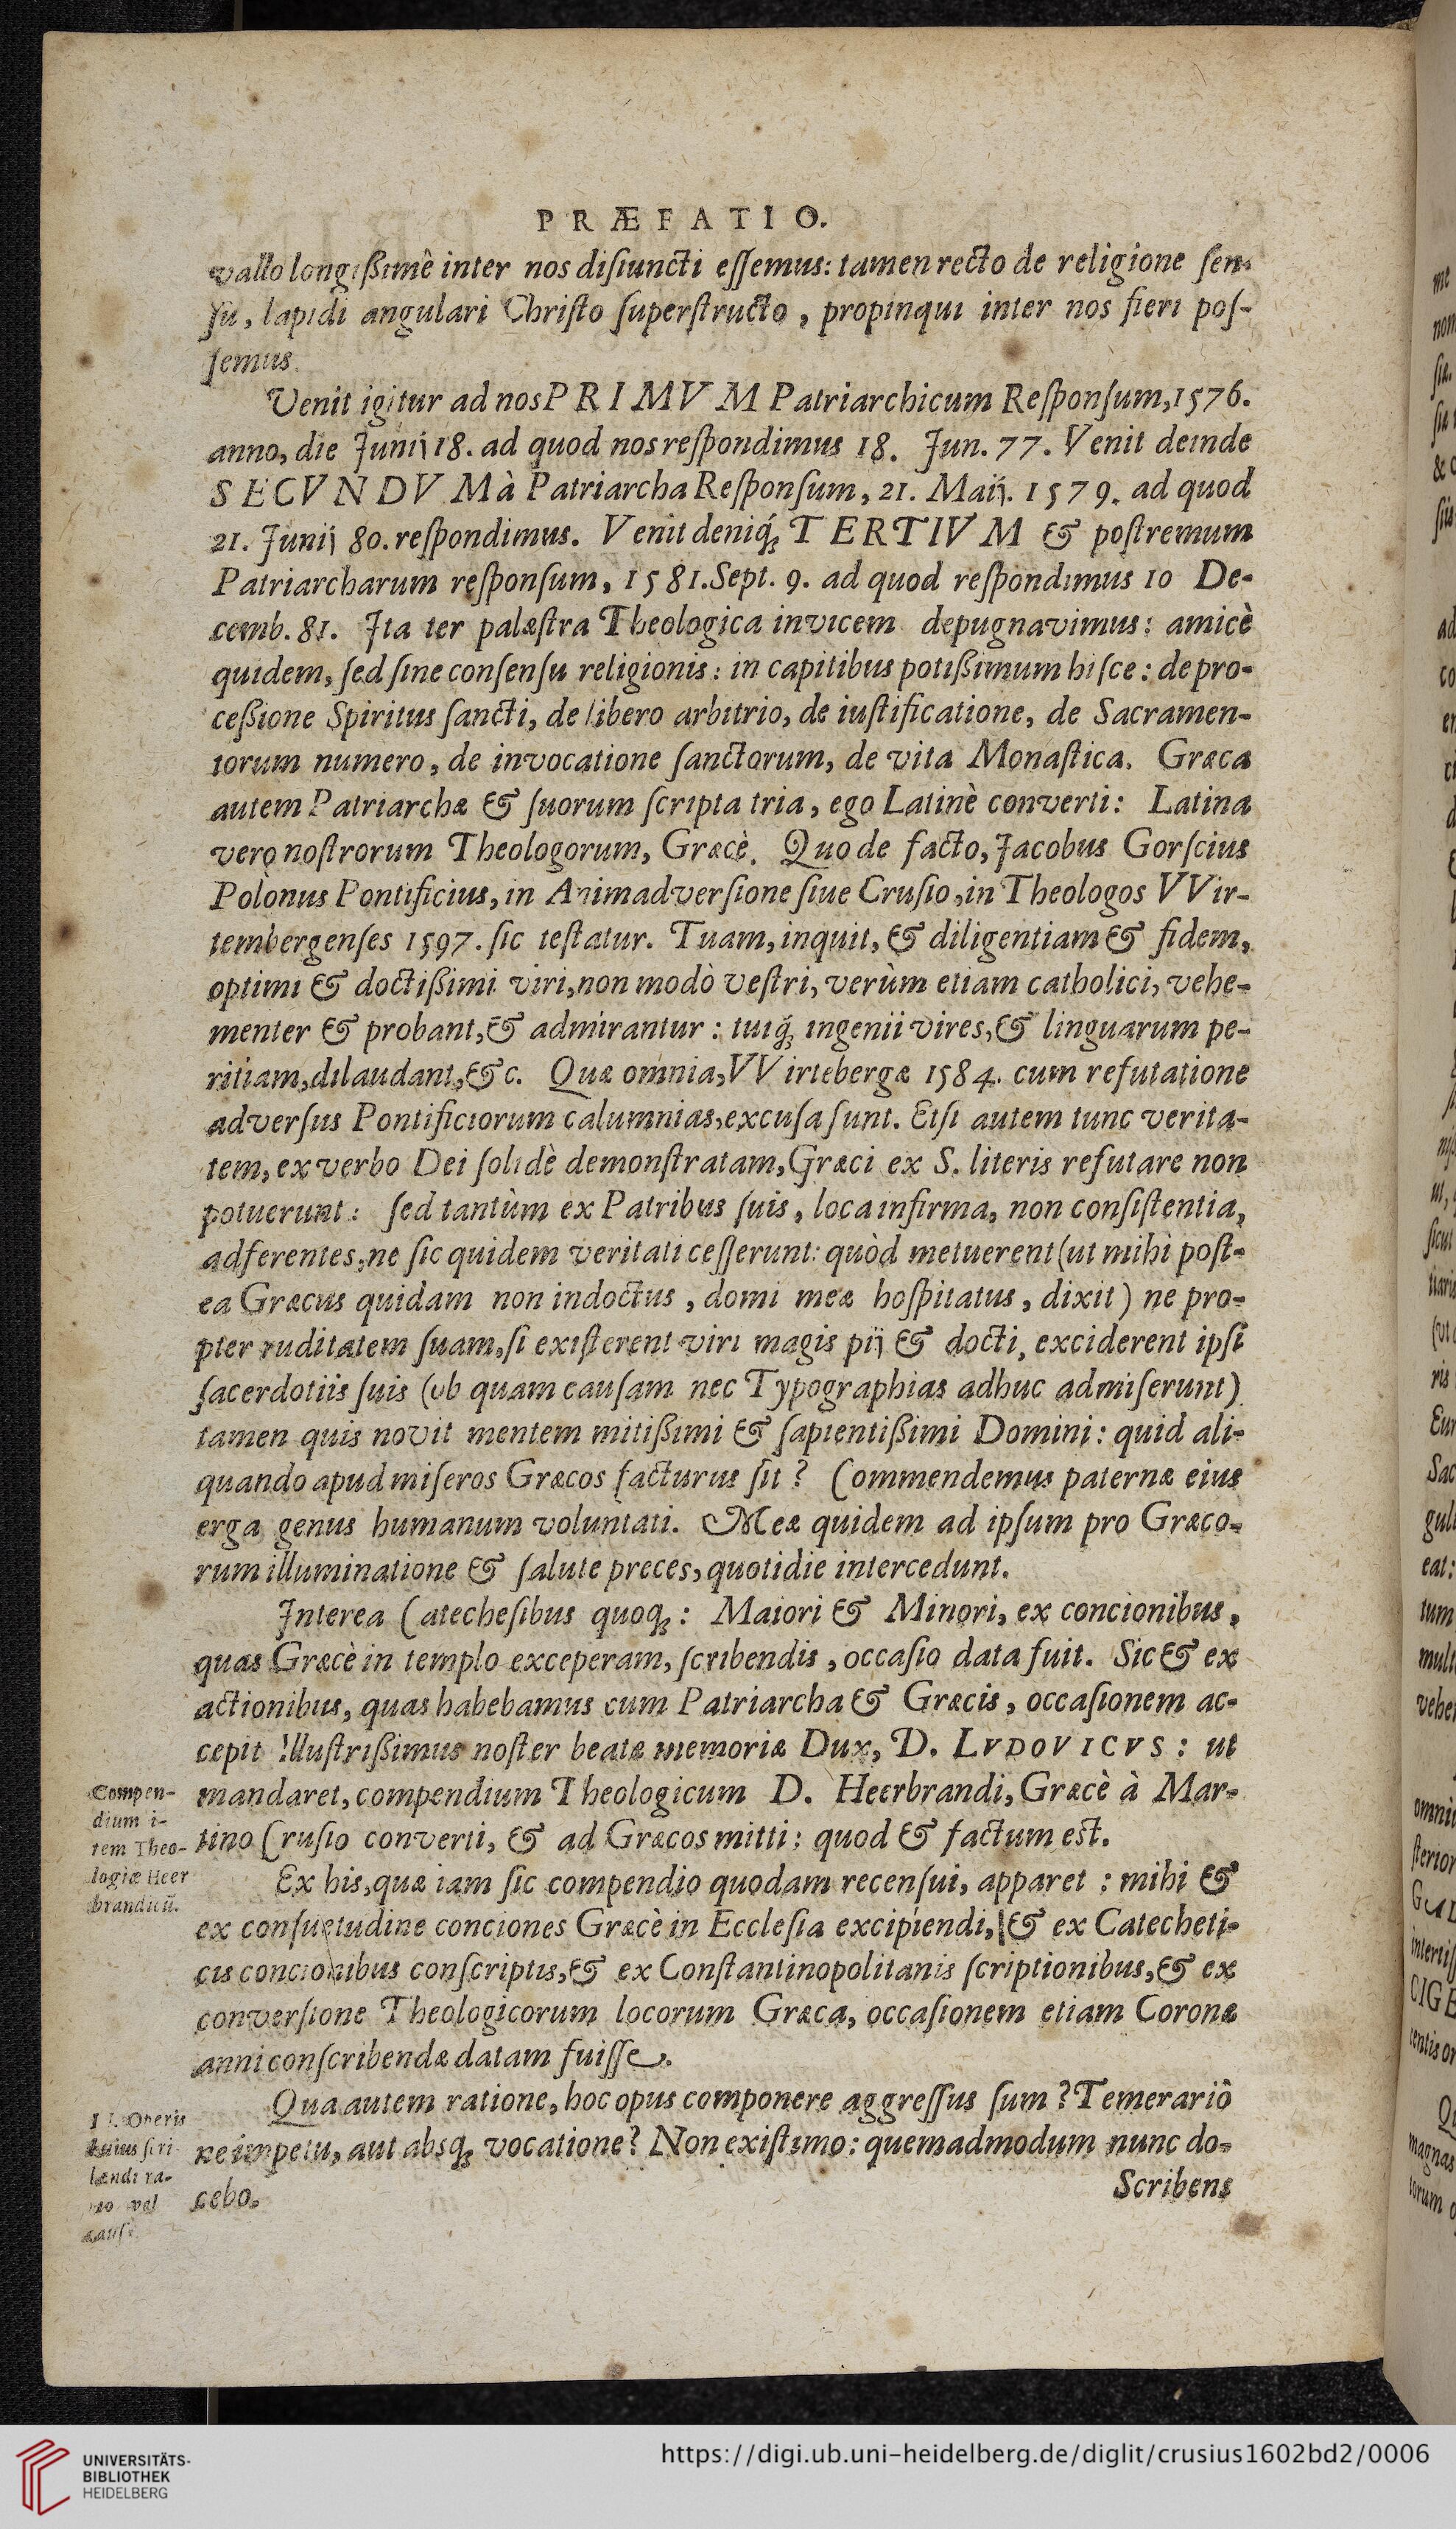 PRÆFATIO.
vallo longißimè inter nos disiuncti essemus: tamen recto de religione sen-
su, lapidi angulari Christo superstructo, propinqui inter nos fieri pos-
semus.
Venit igitur ad nos PRIMVM Patriarchicum Responsum, 1576.
anno, die Junij 18. ad quod nos respondimus 18. Jun. 77. Venit deinde
SECVNDVM à Patriarcha Responsum, 21. Maij. 1579. ad quod
21. Junij 80. respondimus. Venit deniq́; TERTIVM & postremum
Patriarcharum responsum, 1581. Sept. 9. ad quod respondimus 10 De-
cemb. 81. Ita ter palæstra Theologica invicem depugnavimus: amicè
quidem, sed sine consensu religionis: in capitibus potißimum hisce: de pro-
ceßione Spiritus sancti, de libero arbitrio, de iustificatione, de Sacramen-
torum numero, de invocatione sanctorum, de vita Monastica. Græca
autem Patriarchæ & suorum scripta tria, ego Latinè converti: Latina
verò nostrorum Theologorum, Græcè. Quo de facto, Jacobus Gorscius
Polonus Pontificius, in Animadversione siue Crusio, in Theologos VVir-
tembergenses 1597. sic testatur. Tuam, inquit, & diligentiam & fidem,
optimi & doctißimi viri, non modò vestri, verùm etiam catholici, vehe-
menter & probant, & admirantur: tuiq́; ingenii vires, & linguarum pe-
ritiam, dilaudant, &c. Quæ omnia, VVirtebergæ 1584. cum refutatione
adversus Pontificiorum calumnias, excusa sunt. Etsi autem tunc verita-
tem, ex verbo Dei solidè demonstratam, Græci ex S. literis refutare non
potuerunt: sed tantùm ex Patribus suis, loca infirma, non consistentia,
adferentes, ne sic quidem veritati cesserunt: quòd metuerent (ut mihi post-
ea Græcus quidam non indoctus, domi meæ hospitatus, dixit) ne pro-
pter ruditatem suam, si existerent viri magis pij & docti, exciderent ipsi
sacerdotiis suis (ob quam causam nec Typographias adhuc admiserunt)
tamen quis novit mentem mitißimi & sapientißimi Domini: quid ali-
quando apud miseros Græcos facturus sit? Commendemus paternæ eius
erga genus humanum voluntati. Meæ quidem ad ipsum pro Græco-
rum illuminatione & salute preces, quotidie intercedunt.
Interea Catechesibus quoq;: Maiori & Minori, ex concionibus,
quas Græcè in templo exceperam, scribendis, occasio data fuit. Sic & ex
actionibus, quas habebamus cum Patriarcha & Græcis, occasionem ac-
cepit Illustrißimus noster beatæ memoriæ Dux, D. LVDOVICVS: ut
mandaret, compendium Theologicum D. Heerbrandi, Græcè à Mar-
tino Crusio converti, & ad Græcos mitti: quod & factum est.
Compen-
dium i-
tem Theo-
logiæ Heer
brandicũ.
Ex his, quæ iam sic compendio quodam recensui, apparet: mihi &
ex consuetudine conciones Græcè in Ecclesia excipiendi, & ex Catecheti-
cis concionibus conscriptis, & ex Constantinopolitanis scriptionibus, & ex
conversione Theologicorum locorum Græca, occasionem etiam Coronæ
anni conscribendæ datam fuisse.
Qua autem ratione, hoc opus componere aggressus sum? Temerariô
ne impetu, aut absq; vocatione? Non existimo: quemadmodum nunc do-
cebo.
II. Operis
huius scri-
bendi ra-
tio vel
causa.
Scribens
UNIVERSITÄTS-
BIBLIOTHEK
HEIDELBERG
https://digi.ub.uni-heidelberg.de/diglit/crusius1602bd2/0006